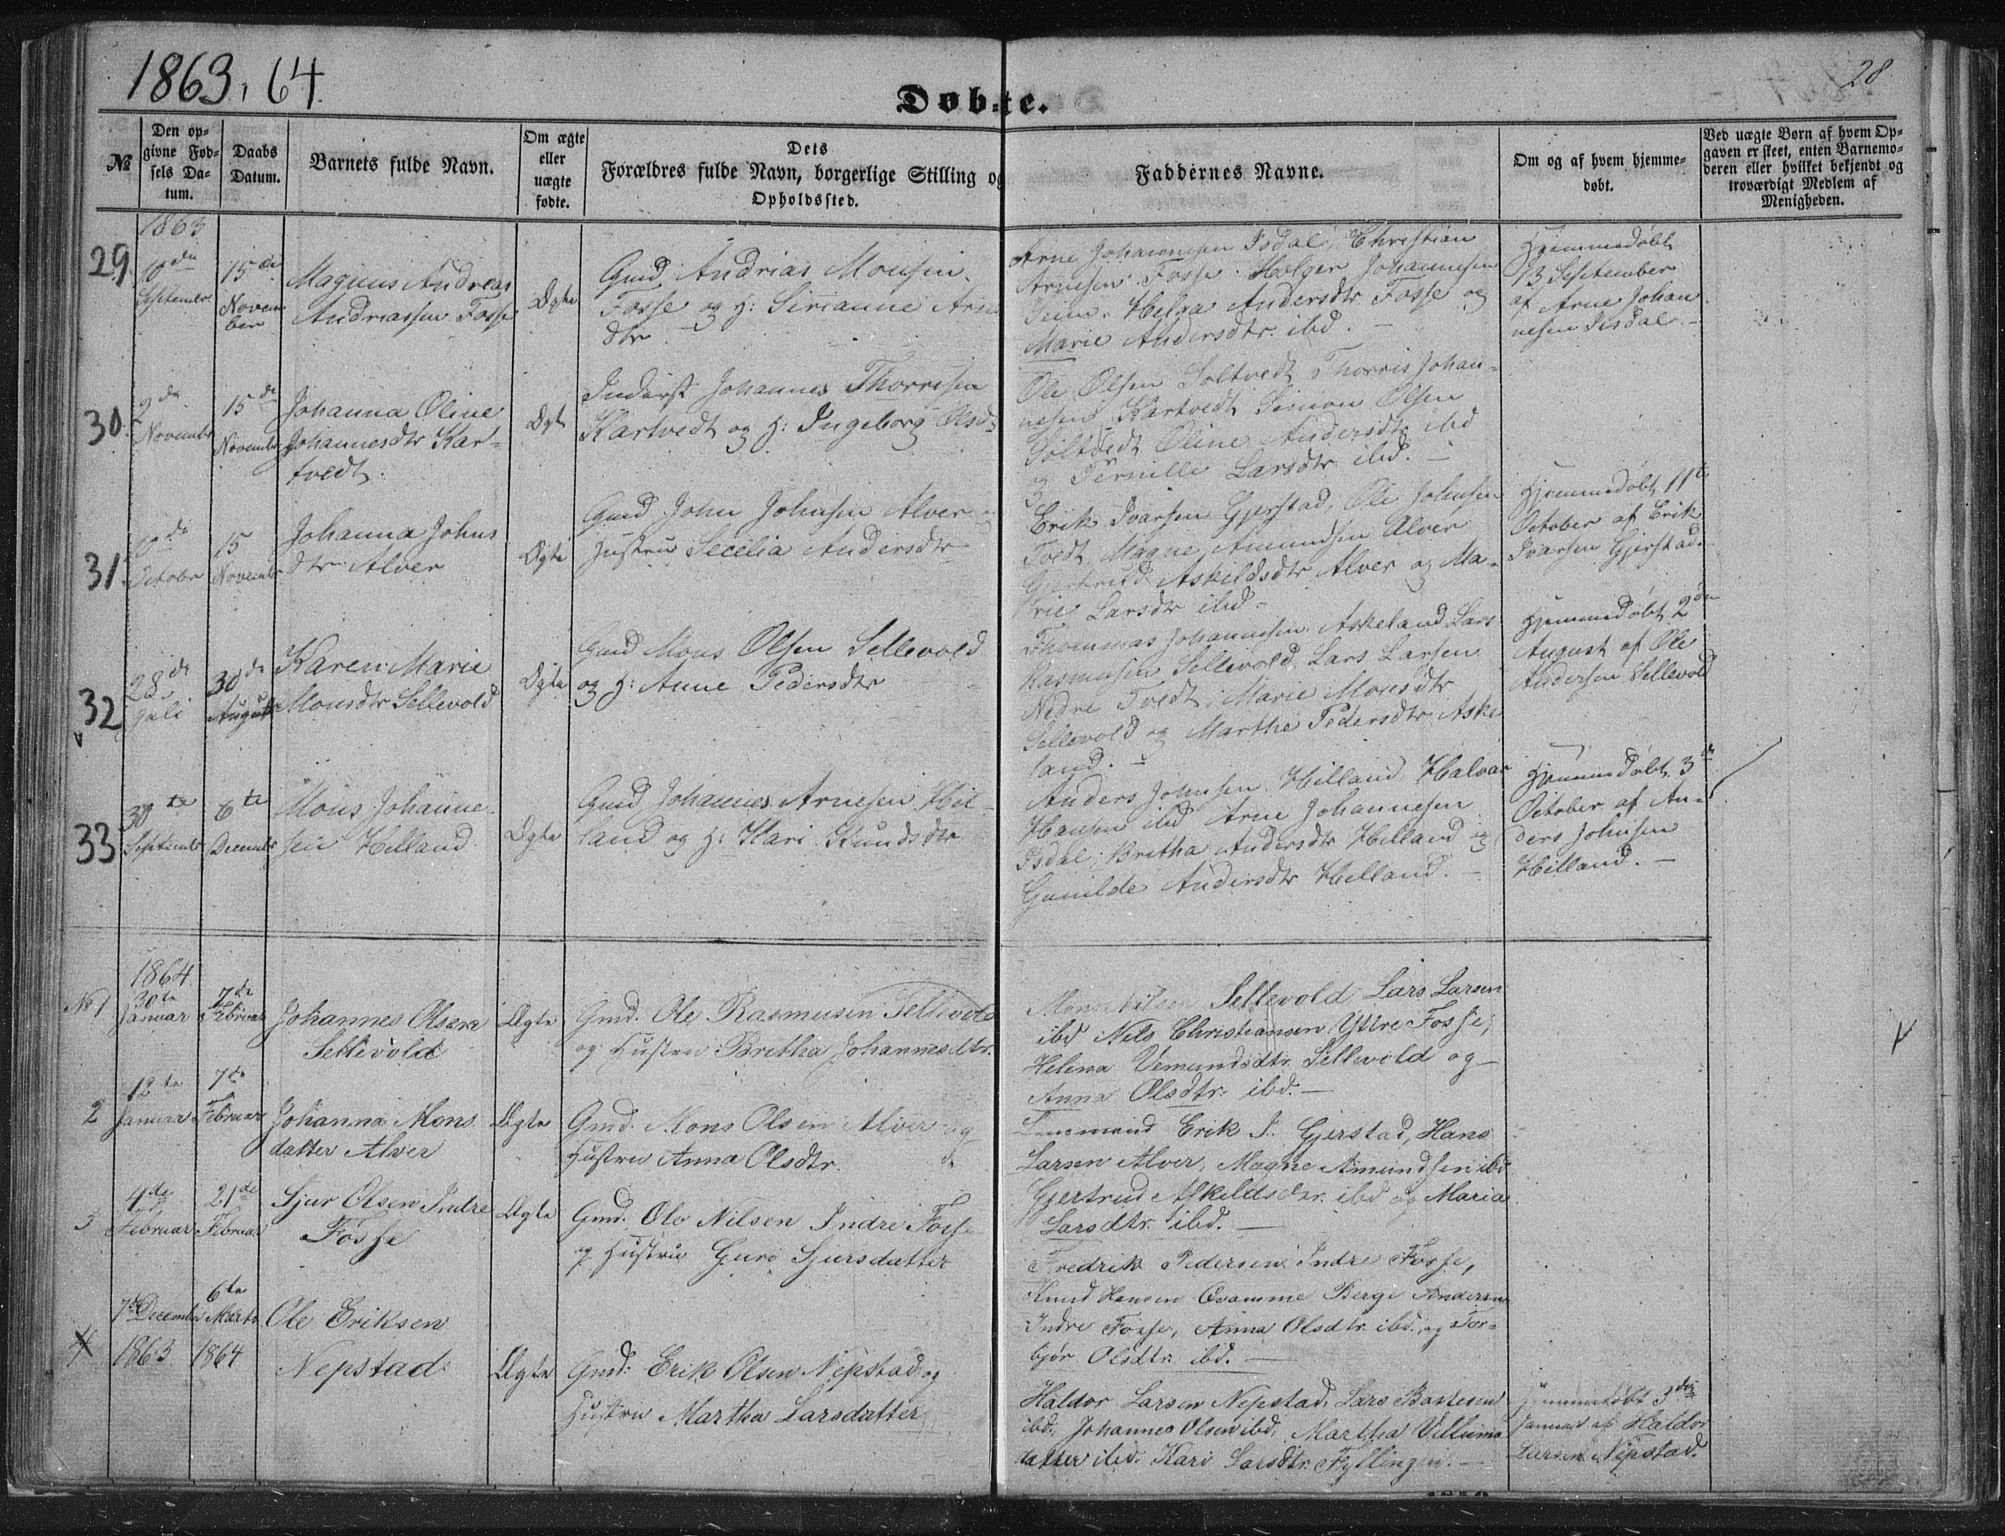 1863, 64.
28
Døbte.
№
Den op-
givne Fød-
sels Da-
tum.
Daabs
Datum.
Barnets fulde Navn.
Om ægte
eller
uægte
fødte.
Dets
Forældres fulde Navn, borgerlige Stilling og
Opholdssted.
Faddernes Navne.
Om og af hvem hjemme-
døbt.
Ved uægte Børn af hvem Op-
gaven er skeet, enten Barnemo-
deren eller hvilket bekjendt og
troværdigt Medlem af
Menigheden.
1863
29.
10de
September
15de
Novem
ber
Magnus Andreas
Andriassen Fosse
Ægte
Gmd Andrias Monsen
Fosse og H: Sirianne Arne
dtr
Arne Johannesen Isdal, Christian
Arnesen Fosse. Holger Johannesen
Helga Andersdtr Fosse og
Marie Andersdtr ibd. —
Hjemmedøbt
13 September
af Arne Johan
nesen Isdal. —
30.
2den
Novembr
15de
Novembr
Johanna Oline
Johannesdtr Kar-
tvedt.
Ægte
Inderst Johannes Thorresen
Kartvedt og H: Ingeborg Olsdt
Ole Olsen Soltvedt Thorris Johan-
nesen Kartvedt Simon Olsen
Soltvedt Oline Andersdtr ibd
og Pernille Larsdtr ibd. —
31.
10de
Octobr
15
Novembr
Johanna Johns
dtr Alver
Ægte
Gmd John Johnsen Alver og
Hustru Secelia Andersdtr
Erik Ivarsen Gjerstad, Ole Johnsen
Tvedt, Magne Amundsen Alver
Gjertrud Askildsdtr Alver og Ma-
rie Larsdtr ibd.
Hjemmedøbt 11te
October af Erik
Ivarsen Gjerstad. —
32
28de
Juli
30de
August
Karen Marie
Monsdtr Sellevold
Ægte
Gmd Mons Olsen Sellevold
og H: Anne Pedersdtr
Thommas Johannesen Askeland, Lars
Rasmusen Sellevold, Lars Larsen
Nedre Tvedt, Marie Monsdtr
Sellevold og Marthe Pedersdtr Aske
land. —
Hjemmedøbt 2den
August af Ole
Andersen Sellevold
33
30te
Septembr
6te
Decembr
Mons Johanne-
sen Helland
Ægte
Gmd Johannes Arnesen Hel-
land og H: Kari Knudsdtr
Anders Johnsen Helland Halvar
Hansen ibd Arne Johannesen
Isdal, Britha Andersdtr Helland og
Gunilde Andersdtr Helland. —
Hjemmedøbt 3de
October af An-
ders Johnsen
Helland. —
1864
No 1
30te
Januar
7de
Februar
Johannes Olsen
Sellevold
Ægte
Gmd. Ole Rasmusen Sellevold
og Hustru Britha Johannesdtr.
Mons Nilsen Sellevold, Lars Larsen
ibd Nils Christiansen Yttre Fosse,
Helena Vemundsdtr. Sellevold og
Anna Olsdtr. ibd. —
2
12te
Januar
7de
Februar
Johanna Mons
datter Alver
Ægte
Gmd. Mons Olsen Alver og
Hustru Anna Olsdtr.
Lensmand Erik I. Gjerstad, Hans
Larsen Alver, Magne Amundsen ibd
Gjertrud Askeldsdtr. ibd og Maria
Larsdtr. ibd. —
3
4de
Februar
21de
Februar
Sjur Olsen Indre
Fosse
Ægte
Gmd. Ole Nilsen Indre Fosse
og Hustru Guro Sjursdatter
Fredrik Pedersen Indre Fosse,
Knud Hansen Qvamme Berge Andersen
Indre Fosse, Anna Olsdtr. ibd. og Tor-
bjør Olsdtr. ibd. —
4
7de December
1863
6te
Marts
1864
Ole Eriksen
Nepstad.
Ægte
Gmd: Erik Olsen Nepstad og
Hustru Martha Larsdatter
Haldor Larsen Nepstad, Lars Bastesen
ibd. Johannes Olsen ibd, Martha Villums
datter ibd. Kari Larsdtr. Fyllingen. —
Hjemmedøbt 3den
Januar af Haldor
Larsen Nepstad.